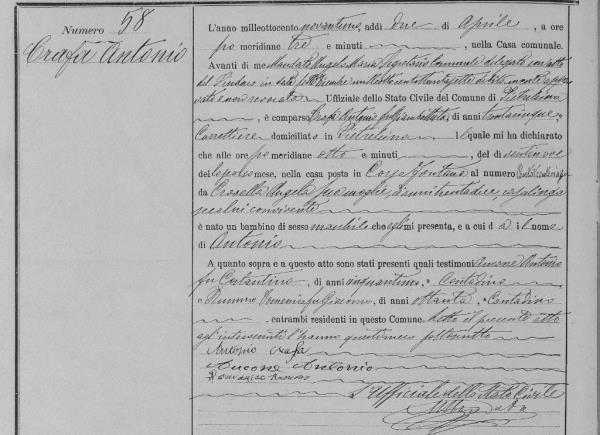 Numero 58
Crafa Antonio
L'anno milleottocento novantuno, addì due di Aprile, a ore
po meridiane tre e minuti, nella Casa comunale.
Avanti di me Mandato Angelo Maria Segretario Comunale delegato con atto
del Sindaco in data
Uffiziale dello Stato Civile del Comune di Pietrelcina
è comparso Crafa Antonio fu Giambattista, di anni trentacinque,
Carrettiere domiciliato in Pietrelcina, il quale mi ha dichiarato
che alle ore po meridiane otto e minuti, del dì ventinove
del mese, nella casa posta in Corso Fontana al numero
da Angela sua moglie, di anni trentadue, casalinga
seco lui convivente
è nato un bambino di sesso maschile che egli mi presenta, e a cui dà il nome
di Antonio
A quanto sopra e a questo atto sono stati presenti quali testimoni Aucone Antonio
fu Costantino, di anni cinquantuno, Contadino
e Domenico fu, di anni ottanta, Contadino
, entrambi residenti in questo Comune. Letto il presente atto
agli intervenuti l'hanno questi meco sottoscritto
Antonio Crafa
Aucone Antonio
Domenico
L'Uffiziale dello Stato Civile